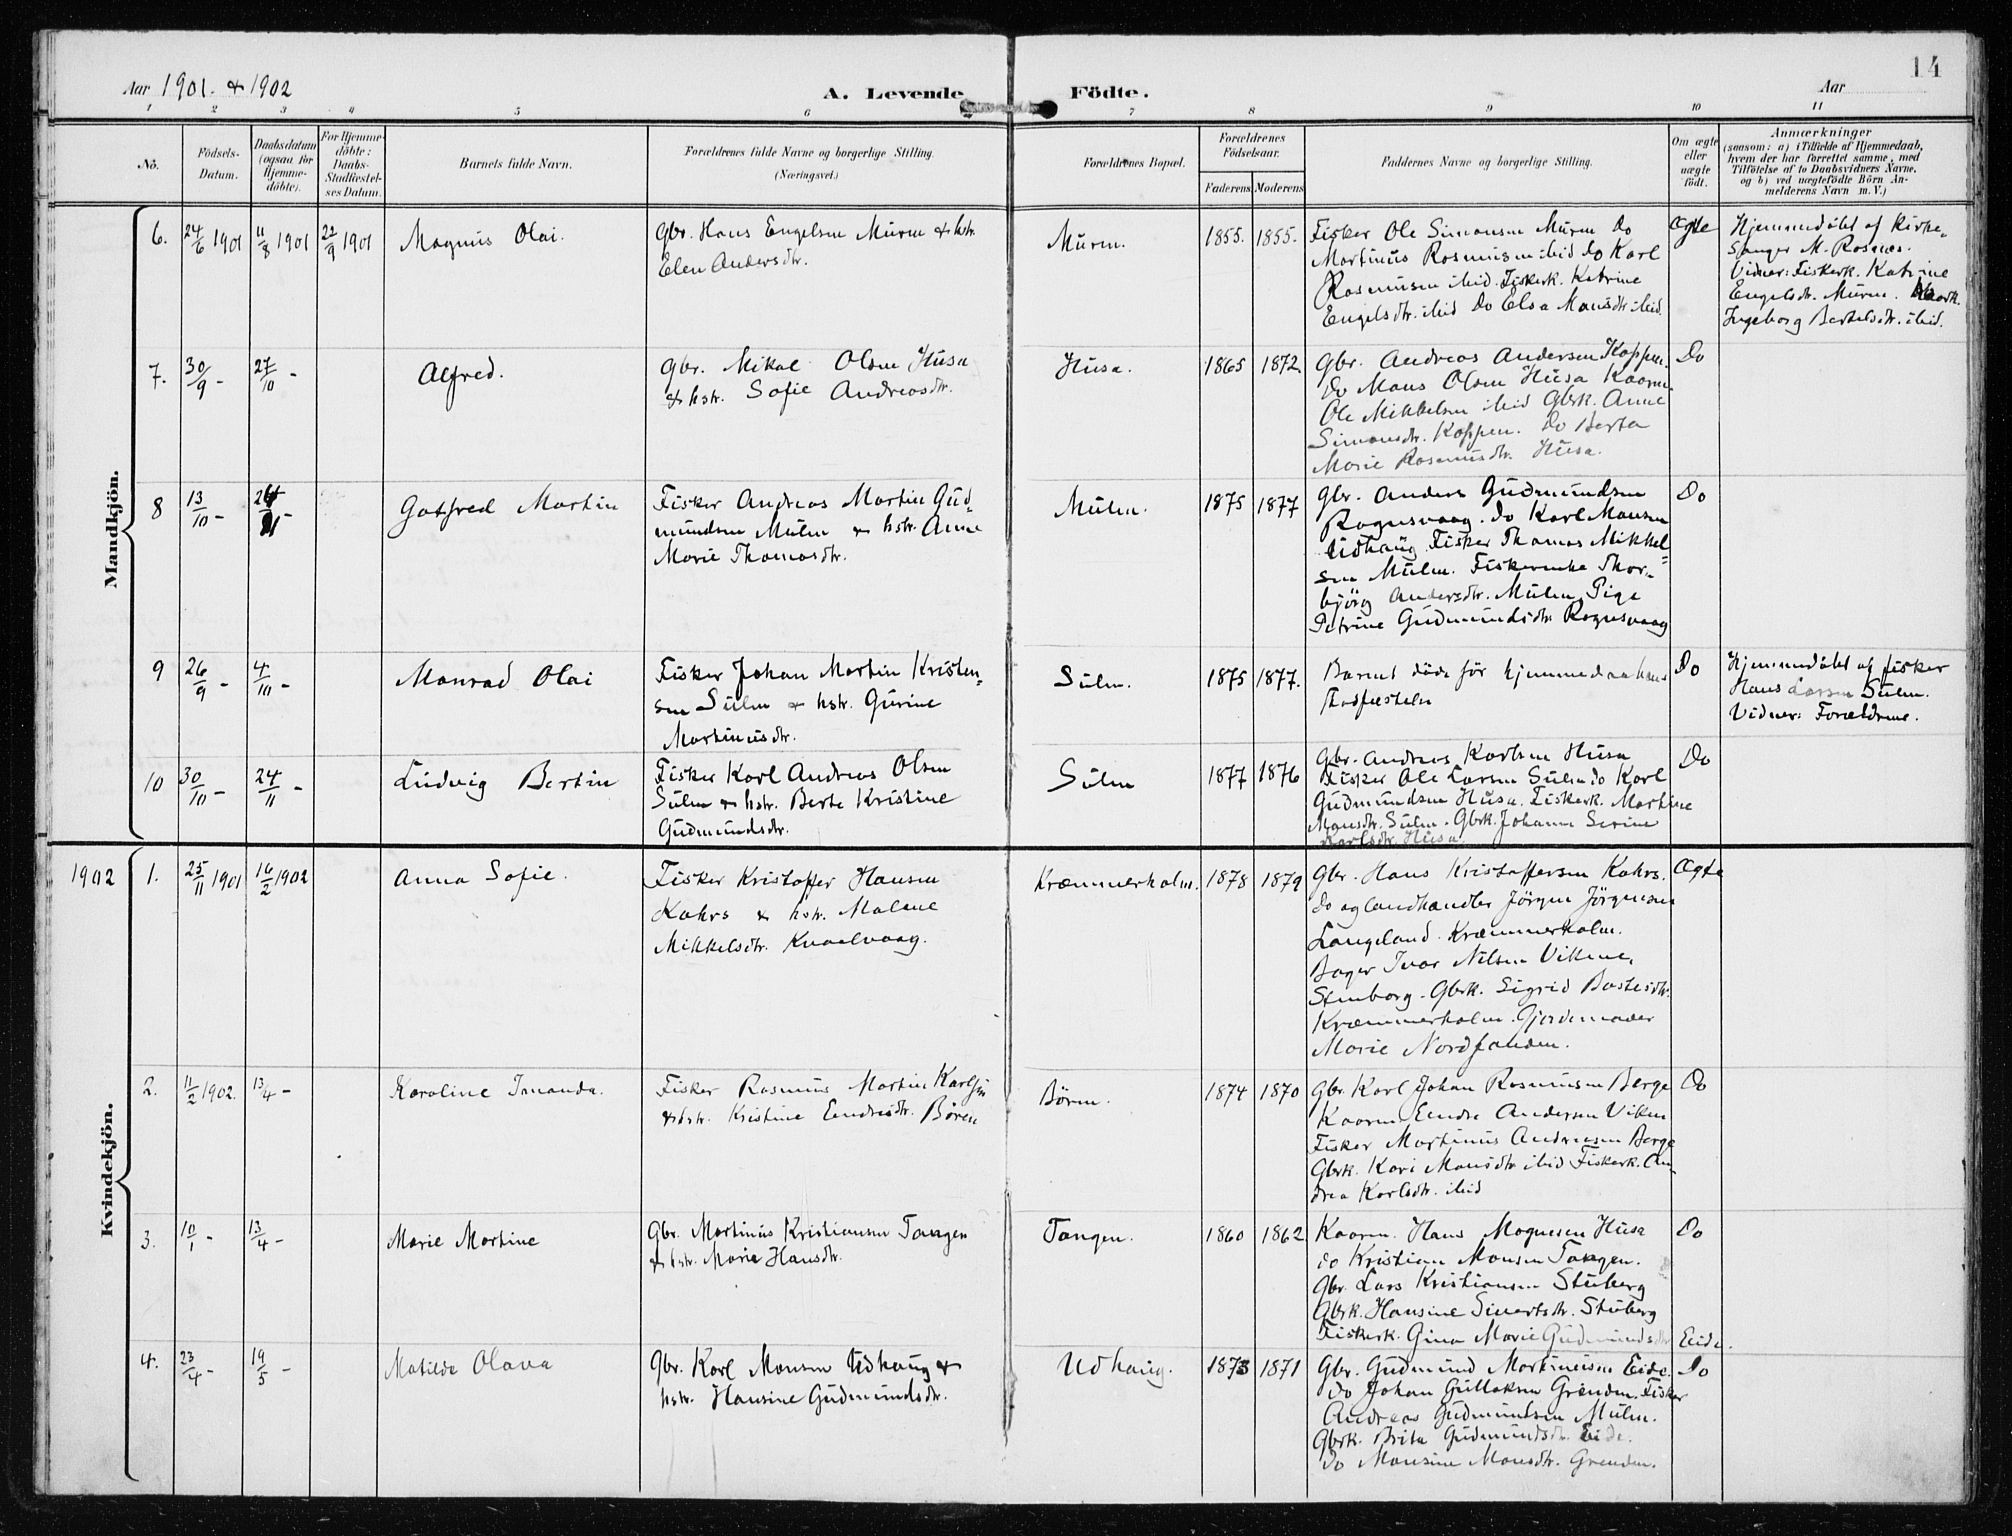 14
Aar 1901. & 1902
A. Levende
Födte.
Aar
1 2 3 4 5 6 7 8 9 10 11
No.
Födsels-
Datum.
Daabsdatum
(ogsaa for
Hjemme-
döbte).
For Hjemme-
döbte:
Daabs-
Stadfæstel-
ses Datum.
Barnets fulde Navn.
Forældrenes fulde Navne og borgerlige Stilling.
(Næringsvei.)
Forældrenes Bopæl.
Forældrenes
Födselsaar.
Faderens Moderens
Faddernes Navne og borgerlige Stilling.
Om ægte
eller
uægte
födt.
Anmærkninger
(saasom: a) i Tilfælde af Hjemmedaab,
hvem der har forrettet samme, med
Tilföielse af to Daabsvidners Navne,
og b) ved uægtefödte Börn An-
melderens Navn m. V.)
Mandkjön.
6. 24/6 1901 11/8 1901 22/9 1901 Magnus Olai.
Gbr. Hans Engelsen Murm & hstr.
Elen Andersdtr.
Murm.
1855. 1855.
Fisker Ole Simonsen Murm Do
Martinus Rasmusen ibid do Karl
Rasmusen ibid. Fiskerk. Katrine
Engelsdtr. ibid Do Elsa Monsdtr ibid.
Ægte
Hjemmedöbt af Kirke-
sanger M. Rosnæs.
Vidner: Fiskerk. Katrine
Engelsdtr. Murm.
Ingeborg Bertelsdtr. ibid.
7. 30/9 - 27/10 - Alfred.
Gbr. Mikal Olsen Husa
& hstr. Sofie Andreasdtr.
Husa.
1865 1872
Gbr. Andreas Andersen Koppen.
Do Mons Olsen Husa Kaarm.
Ole Mikkelsen ibid Gbrk. Anne
Simonsdtr. Koppen. Do Berta
Marie Rasmusdtr. Husa.
Do
8 13/10 - 24/11 - Gotfred Martin
Fisker Andreas Martin Gud-
mundsen Mulm & hstr. Anne
Marie Thomasdtr.
Mulm.
1875 1877
Gbr. Anders Gudmundsen
Rognsvaag. do Karl Monsen
Udhaug Fisker Thomas Mikkel-
sen Mulm. Fiskerenke Thor-
björg Andersdtr. Mulm Pige
Petrine Gudmundsdtr Rognsvaag
Do
9 26/9 - 4/10 - Monrad Olai
Fisker Johan Martin Kristen-
sen Sulm & hstr. Gurine
Martinusdtr.
Sulm.
1875 1877.
Barnet döde för hjemmedaabens
Stadfæstelse
Do
Hjemmedöbt af fisker
Hans Larsen Sulm.
Vidner: Forældrene.
10 30/10 - 24/11 - Ludvig Bertin
Fisker Karl Andreas Olsen
Sulm & hstr. Berte Kristine
Gudmundsdtr.
Sulm
1877 1876
Gbr. Andreas Karlsen Husa
Fisker Ole Larsen Sulm do Karl
Gudmundsen Husa. Fiskerk. Martine
Monsdtr. Sulm. Gbrk. Johanne Serine
Karlsdtr. Husa.
Do
Kvindekjön.
1902 1. 25/11 1901 16/2 1902 Anna Sofie.
Fisker Kristoffer Hansen
Kahrs & hstr. Malene
Mikkelsdtr. Kvaelvaag.
Kræmmerholm.
1878 1879
Gbr. Hans Kristoffersen Kahrs.
do og landhandler Jörgen Jörgensen
Langeland. Kræmmerholm.
Bager Ivar Nilsen Vikene,
Stenborg. Gbrk. Sigrid Bastesdtr.
Kræmmerholm. Gjordemoder
Marie Nordfonden.
Ægte
2. 11/2 1902. 13/4 - Karoline Imanda.
Fisker Rasmus Martin Karlsen
& hstr. Kristine Endresdtr. Bören
Bören.
1874 1870
Gbr. Karl Johan Rasmusen Berge
Kaarm. Endre Andersen Viken
Fisker Martinus Andersen Berge
Gbrk. Kari Monsdtr ibid Fiskerk. An-
drea Karlsdtr. ibid
Do
3. 10/1 - 13/4 - Marie Martine
Gbr. Martinus Kristiansen Tangen
& hstr. Marie Hansdtr.
Tangen.
1860 1862
Kaarm. Hans Mognesen Husa
do Kristian Monsen Tangen.
Gbr. Lars Kristiansen Stuberg
Gbrk. Hansine Sivertsdtr. Stuberg
Fiskerk. Gina Marie Gudmundsdtr Eide.
Do
4. 23/4 - 19/5 - Matilda Olava
Gbr. Karl Monsen Udhaug &
hstr. Hansine Gudmundsdtr.
Udhaug.
1873 1871
Gbr. Gudmund Martinusen Eide.
do Johan Gullaksen Grenden. Fisker
Andreas Gudmundsen Mulm.
Gbrk. Brita Gudmundsdtr. Eide.
Do Monsine Monsdtr. Grenden.
Do